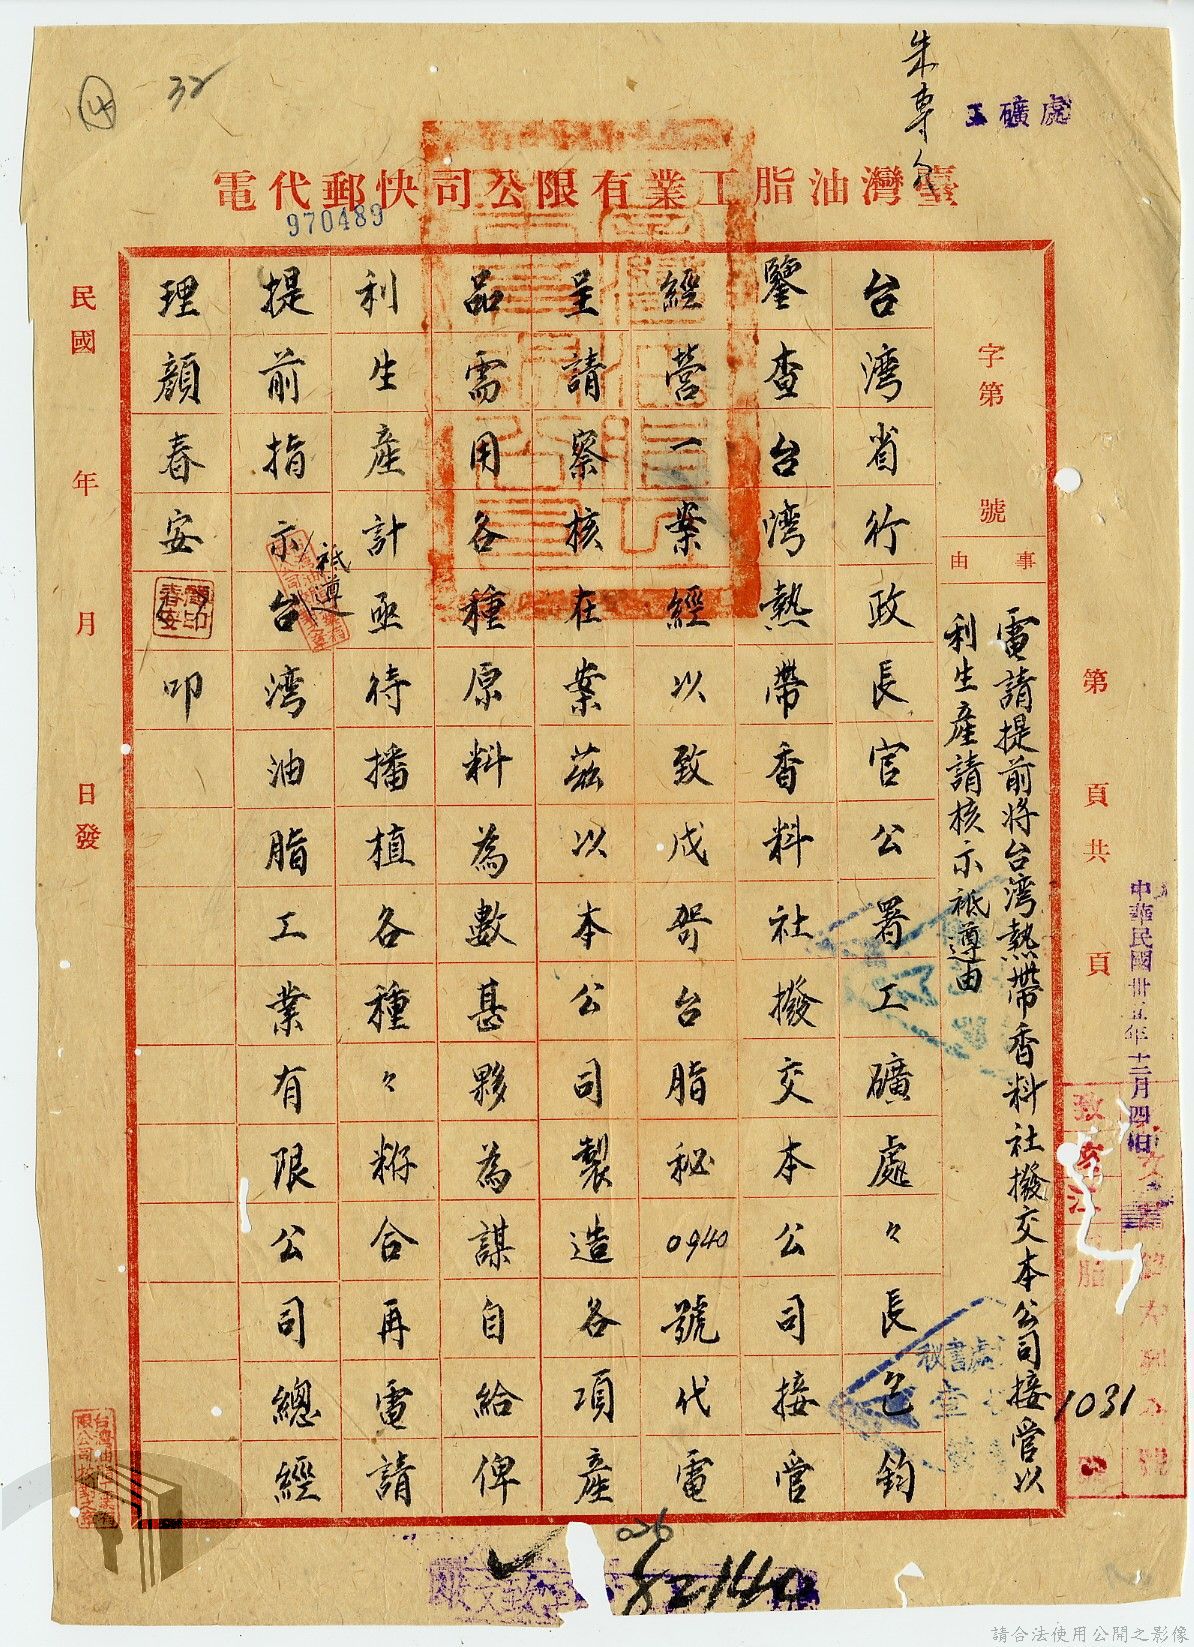 朱專
工礦處
臺灣油脂工業有限公司快郵代電
970489
32
字第
號
事由
電請提前將台湾熱帶香料社撥交本公司接管以
利生產請核示祗遵由
台湾省行政長官公署工礦處々長包鈞
鑒查台湾熱帶香料社撥交本公司接管
經營一案經以致戌哿台脂秘0940號代電
呈請察核在案茲以本公司製造各項產
品需用各種原料為數甚夥為謀自給俾
利生產計亟待播植各種々籽合再電請
提前指示祗遵台湾油脂工業有限公司總經
理顏春安叩
顏春安印
民國 年 月 日發
第 頁共 頁
中華民國卅五年十二月四日
1031
秘書處
026
請合法使用公開之影像